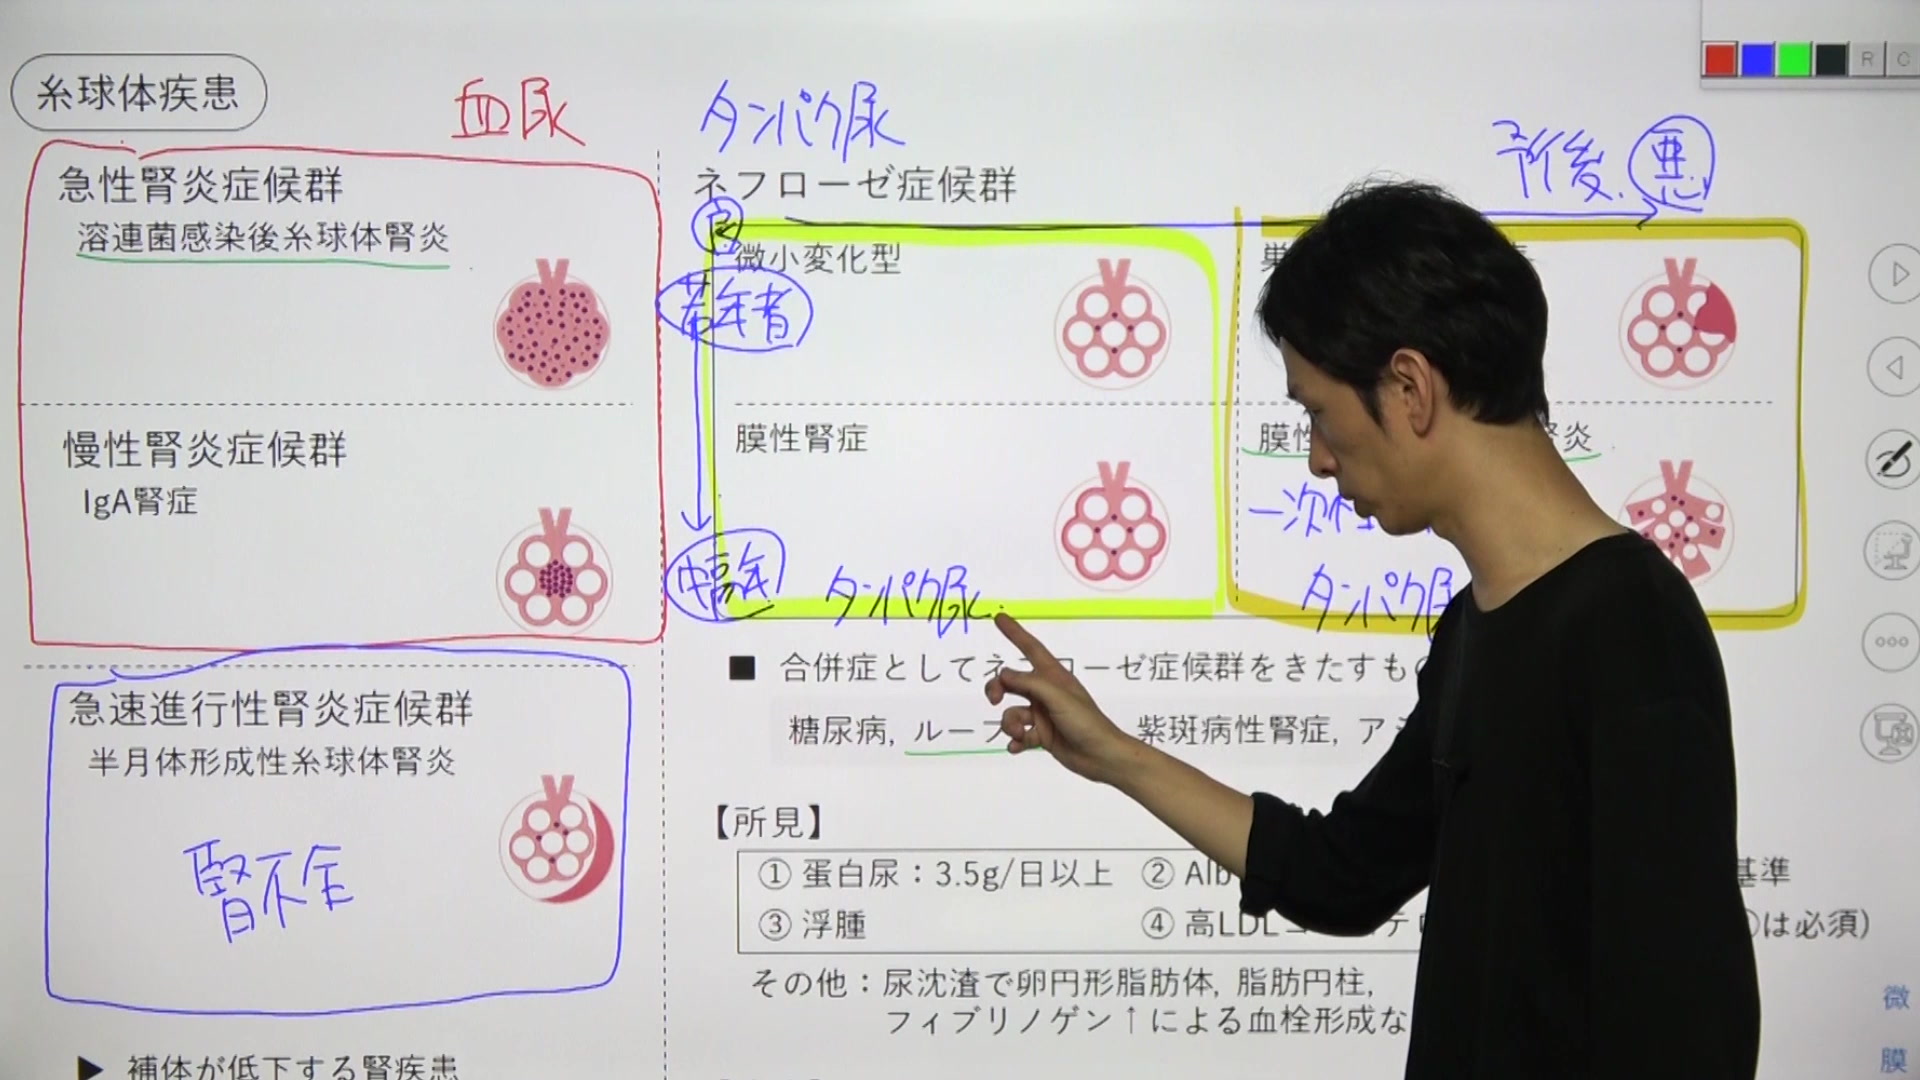 糸球体疾患
血尿
急性腎炎症候群
溶連菌感染後糸球体腎炎
慢性腎炎症候群
IgA腎症
急速進行性腎炎症候群
半月体形成性糸球体腎炎
腎不全
▶ 補体が低下する腎疾患
タンパク尿
予後 悪
ネフローゼ症候群
良
微小変化型
巣
若年者
膜性腎症
膜性
腎炎
一次性
中高年
タンパク尿
タンパク尿
■ 合併症としてネフローゼ症候群をきたすもの
糖尿病, ループ 紫斑病性腎症, アミ
【所見】
① 蛋白尿：3.5g/日以上 ② Alb 基準
③ 浮腫 ④ 高LDLコ テロ は必須)
その他：尿沈渣で卵円形脂肪体, 脂肪円柱,
フィブリノゲン↑による血栓形成な
微
膜
R